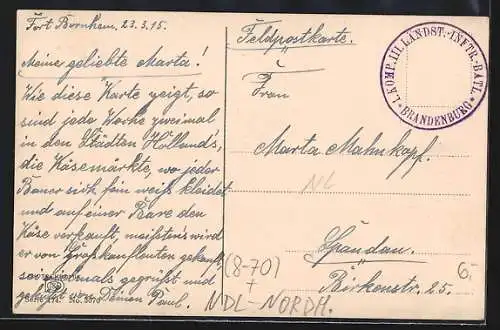 Fort Bornhem, 23.3.15.
Meine geliebte Marta!
Wie diese Karte zeigt, so
sind jede Woche zweimal
in den Städten Holland's
die Käsemärkte, wo jeder
Bauer sich fein weiß kleidet
und auf einer Bare den
Käse verkauft, meistens wird
er von Großkaufleuten gekauft,
sei nochmals gegrüßt und
geküßt von Deinen Paul.
Feldpostkarte.
Frau
Marta Mahnkopf.
NL
Spandau.
Birkenstr. 25.
1. KOMP. III. LANDST.-INFTR.-BATL.
* BRANDENBURG *
6.-
(8-70)
+
NDL-NORDH.